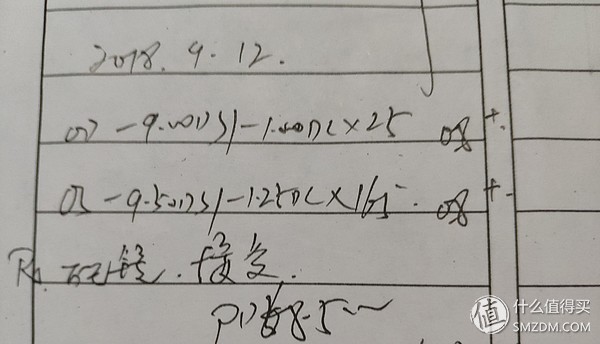 2018.9.12.
OD -9.00DS/-1.00DC×25 0.8 +.
OS -9.50DS/-1.25DC×165. 0.8 +.
Rx 配镜.接受.
PD 58.5
值 什么值得买
SMZDM.COM